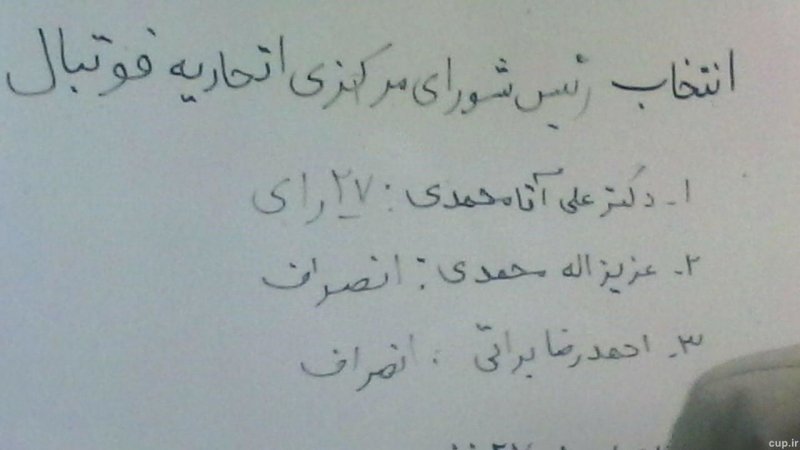 انتخاب رئیس شورای مرکزی اتحادیه فوتبال
۱- دکتر علی آقامحمدی : ۲۷ رای
۲- عزیزاله محمدی : انصراف
۳- احمدرضا براتی : انصراف
cup.ir